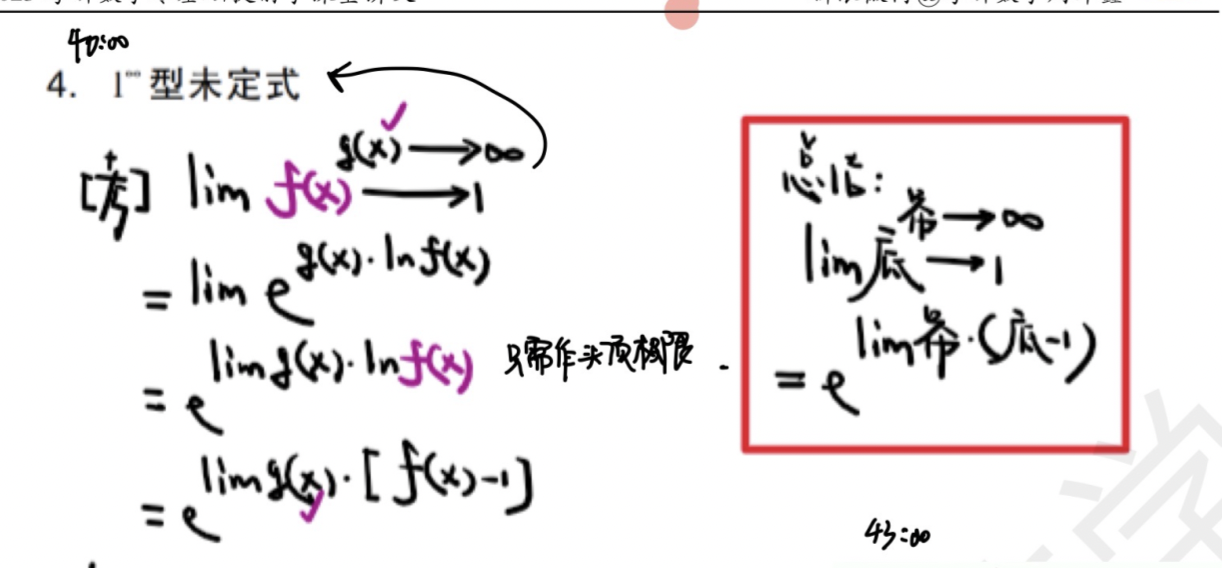 40:00
4. 1^∞ 型未定式
[考] lim f(x)→1 ^ g(x)→∞
= lim e^{g(x)·lnf(x)}
= e^{lim g(x)·lnf(x)} 只需作头顶极限.
= e^{lim g(x)·[f(x)-1]}
总结:
lim 底→1 ^ 幂→∞
= e^{lim 幂·(底-1)}
43:00
学